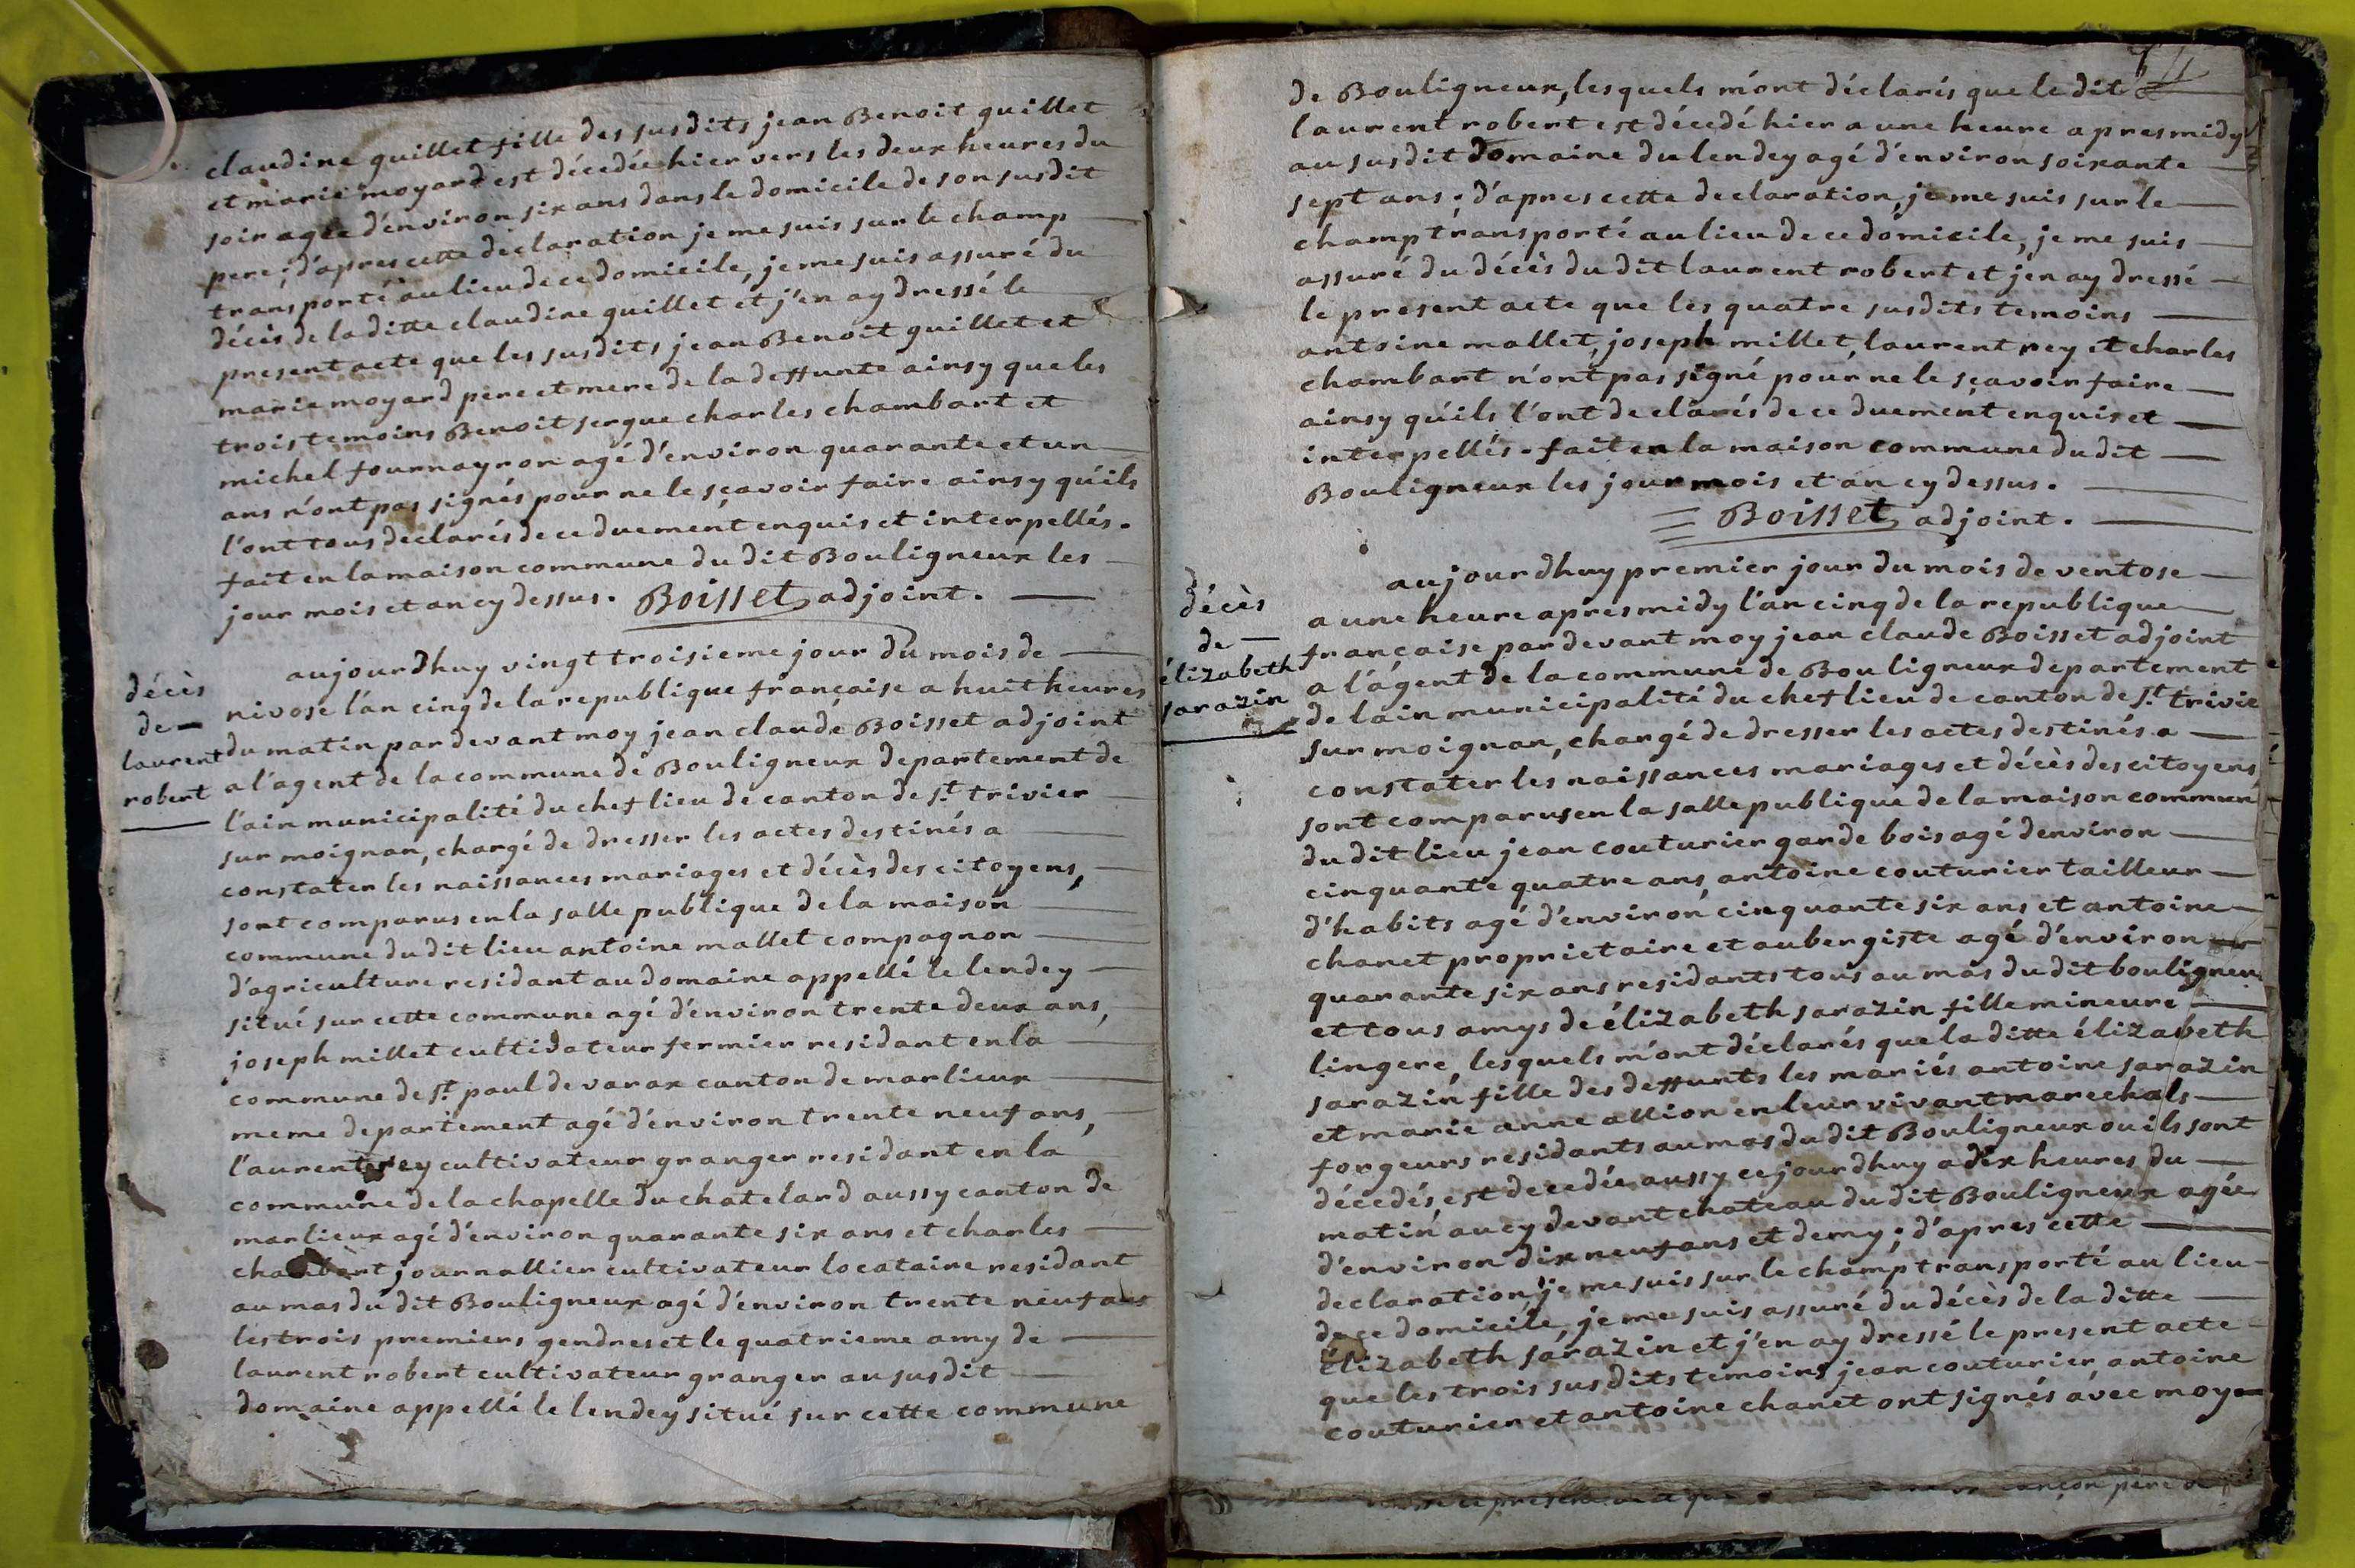 claudine guillet fille des susdits jean Benoit guillet
et marie moyard est décedée hier vers les deux heures du
soir agée d'environ six ans dans le domicile de son susdit
pere; d'apres cette déclaration je me suis sur le champ
transporté au lieu de ce domicile, je me suis assuré du
décès de la ditte claudine guillet et j'en ay dressé le
present acte que les susdits jean Benoit guillet et
marie moyard pere et mere de la deffunte ainsy que les
trois temoins Benoit sergue charles chambart et
michel fournayron agé d'environ quarante et un
ans n'ont pas signés pour ne le sçavoir faire ainsy qu'ils
l'ont tous declarés de ce duement enquis et interpellés.
fait en la maison commune du dit Bouligneux les
jour mois et an cy dessus. Boisset adjoint.
décès
de
laurent
robert
aujourdhuy vingt troisieme jour du mois de
nivose l'an cinq de la republique française a huit heures
du matin pardevant moy jean claude Boisset adjoint
a l'agent de la commune de Bouligneux departement de
l'ain municipalité du chef lieu de canton de st. trivier
sur moignan, chargé de dresser les actes destinés a
constater les naissances mariages et décès des citoyens,
sont comparus en la salle publique de la maison
commune du dit lieu antoine mallet compagnon
d'agriculture residant au domaine appellé le lendey
situé sur cette commune agé d'environ trente deux ans,
joseph millet cultivateur fermier residant en la
commune de st. paul de varax canton de marlieux
meme departement agé d'environ trente neuf ans,
l'aurent rey cultivateur granger residant en la
commune de la chapelle du chatelard aussy canton de
marlieux agé d'environ quarante six ans et charles
chambart journallier cultivateur locataire residant
au mas du dit Bouligneux agé d'environ trente neuf ans
les trois premiers gendres et le quatrieme amy de
laurent robert cultivateur granger au susdit
domaine appellé le lendey situé sur cette commune
de Bouligneux, lesquels m'ont déclarés que le dit
laurent robert est décedé hier a une heure apres midy
au susdit domaine du lendey agé d'environ soixante
sept ans; d'apres cette declaration, je me suis sur le
champ transporté au lieu de ce domicile, je me suis
assuré du décès du dit laurent robert et j'en ay dressé
le present acte que les quatre susdits temoins
antoine mallet, joseph millet, laurent rey et charles
chambart n'ont pas signé pour ne le sçavoir faire
ainsy qu'ils l'ont declarés de ce duement enquis et
interpellés. fait en la maison commune du dit
Bouligneux les jour mois et an cy dessus.
Boisset adjoint.
décès
de
élizabeth
sarazin
aujourdhuy premier jour du mois de ventose
a une heure apres midy l'an cinq de la republique
française pardevant moy jean claude Boisset adjoint
a l'agent de la commune de Bouligneux departement
de lain municipalité du chef lieu de canton de st. trivie
sur moignan, chargé de dresser les actes destinés a
constater les naissances mariages et décès des citoyens,
sont comparus en la salle publique de la maison commune
du dit lieu jean couturier garde bois agé denviron
cinquante quatre ans, antoine couturier tailleur
d'habits agé d'environ cinquante six ans et antoine
chanet proprietaire et aubergiste agé d'environ
quarante six ans residants tous au mas du dit bouligneux
et tous amys de élizabeth sarazin fille mineure
lingere, lesquels m'ont déclarés que la ditte élizabeth
sarazin fille des deffunts les mariés antoine sarazin
et marie anne allion en leur vivant marechals
forgeurs residants au mas du dit Bouligneux ou ils sont
décedés, est decedée aussy ce jourdhuy a dix heures du
matin au cy devant chateau du dit Bouligneux agée
d'environ dix neuf ans et demy; d'apres cette
declaration je me suis sur le champ transporté au lieu
de ce domicile, je me suis assuré du décès de la ditte
élizabeth sarazin et j'en ay dressé le present acte
que les trois susdits temoins jean couturier antoine
couturier et antoine chanet ont signés avec moy